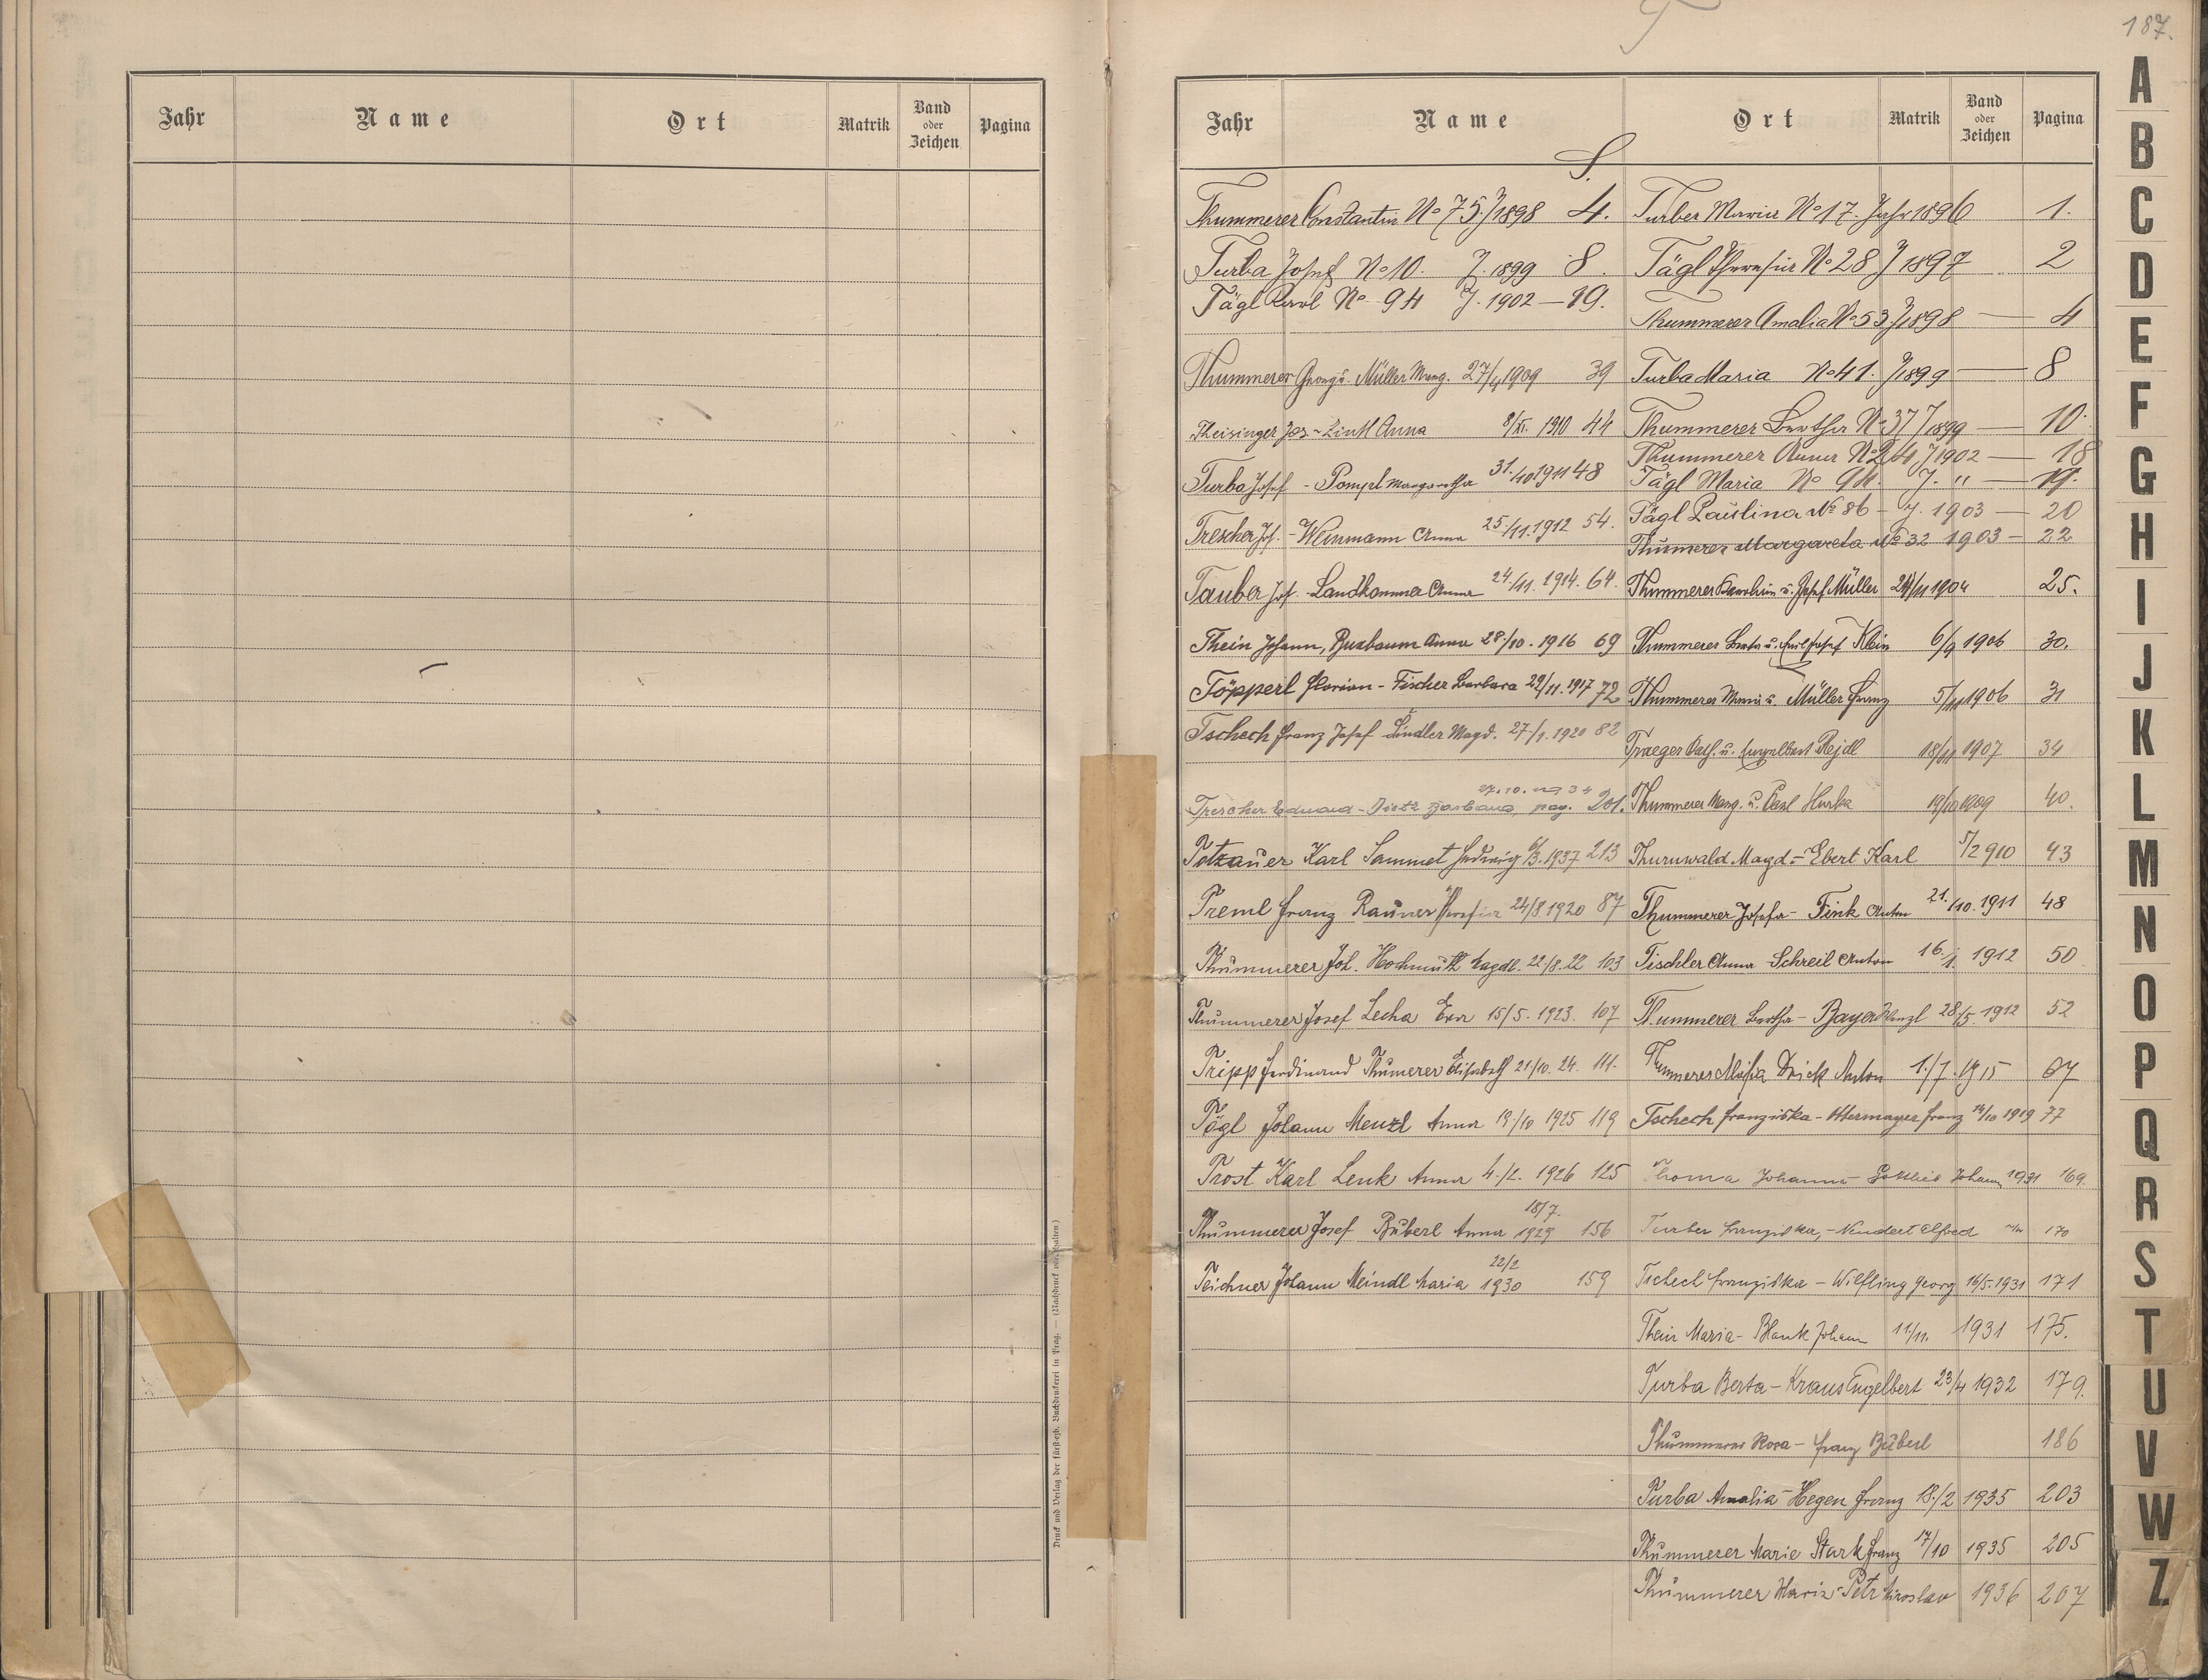 187.
T
Jahr Name Ort Matrik Band oder Zeichen Pagina
Jahr Name Ort Matrik Band oder Zeichen Pagina
S.
Thummerer Constantin No 75 J 1898 4.
Turba Josef No 10. J. 1899 8.
Tägl Karl No 94 J. 1902 — 19.
Thummerer Georg u. Müller Marg. 27/4 1909 39
Theisinger Jos - Zintl Anna 8/XI. 1910 44
Turba Josef - Pompl Margaretha 31./10 1911 48
Trescher Jos. - Weinmann Anna 25./11. 1912 54.
Tauber Jos. - Landkammer Anna 24./11. 1914. 64.
Thein Johann, Buxbaum Anna 28./10. 1916 69
Töpperl Florian - Fischer Barbara 29/11. 1917 72
Tschech Franz Josef Lindler Magd. 27/1. 1920 82
Trescher Eduard - Dietz Barbara, pag. 201.
Tetzauer Karl Sammet Hedwig 6/3. 1937 213
Treml Franz Rauner Theresia 24/8 1920 87
Thümmerer Joh. Hochmuth Magdl. 22/8. 22 103
Thummerer Josef Lecha Eva 15/5. 1923. 107
Tripp Ferdinand Thümerer Elisabeth 21/10. 24. 111.
Tögl Johann Menzl Anna 19/10 1925 119
Trost Karl Lenk Anna 4./2. 1926 125
Thümmerer Josef Büberl Anna 18/7. 1929 156
Teichner Johann Meindl Maria 22/2 1930 159
Turba Maria No 17. Jahr 1896 1.
Tägl Theresia No 28 J 1897 2
Thummerer Amalia No 53 J 1898 — 4
Turba Maria No 41. J 1899 — 8
Thummerer Bertha No 37 J 1899 — 10.
Thummerer Anna No 24 J 1902 — 18
Tägl Maria No 94. J. " — 19.
Tägl Paulina No 86 - J. 1903 — 20
Thümerer Margareta No 32 1903 — 22
Thummerer Karolin u. Josef Müller 24/11 1904 25.
Thummerer Berta u. Josef Klein 6/9 1906 30.
Thummerer Maria u. Müller Franz 5/11 1906 31
Traeger Kath. u. Engelbert Rejdl 18/11 1907 34
Thummerer Marg. u. Karl Hurka 19/10 1909 40.
Thurnwald Magd - Ebert Karl 5/2 910 43
Thummerer Josefa - Fink Anton 21./10. 1911 48
Tischler Anna - Schreil Anton 16./1. 1912 50
Thummerer Bertha - Bayer Wenzl 28./5. 1912 52
Thummerer Aloisia Anton 1./7. 1915 67
Tschech Franziska - Obermayer Franz 14/10 1919 77
Thoma Johanna - Gottlieb Johann 1931 169
Turba Franziska, - Neudert Alfred 170
Tschech Franziska - Wilfling Georg 16/5. 1931 171
Thein Maria - Blank Johann 11/11. 1931 175.
Turba Berta - Kraus Engelbert 23/4 1932 179.
Thümmerer Rosa - Franz Büberl 186
Turba Amalia - Hegen Franz 18./2 1935 203
Thümmerer Marie Stark Franz 17/10 1935 205
Thümmerer Maria - Petr Miroslav 1936 207
A
B
C
D
E
F
G
H
I
J
K
L
M
N
O
P
Q
R
S
T
U
V
W
Z
Druck und Verlag der fürst-erzb. Buchdruckerei in Prag. — (Nachdruck vorbehalten.)